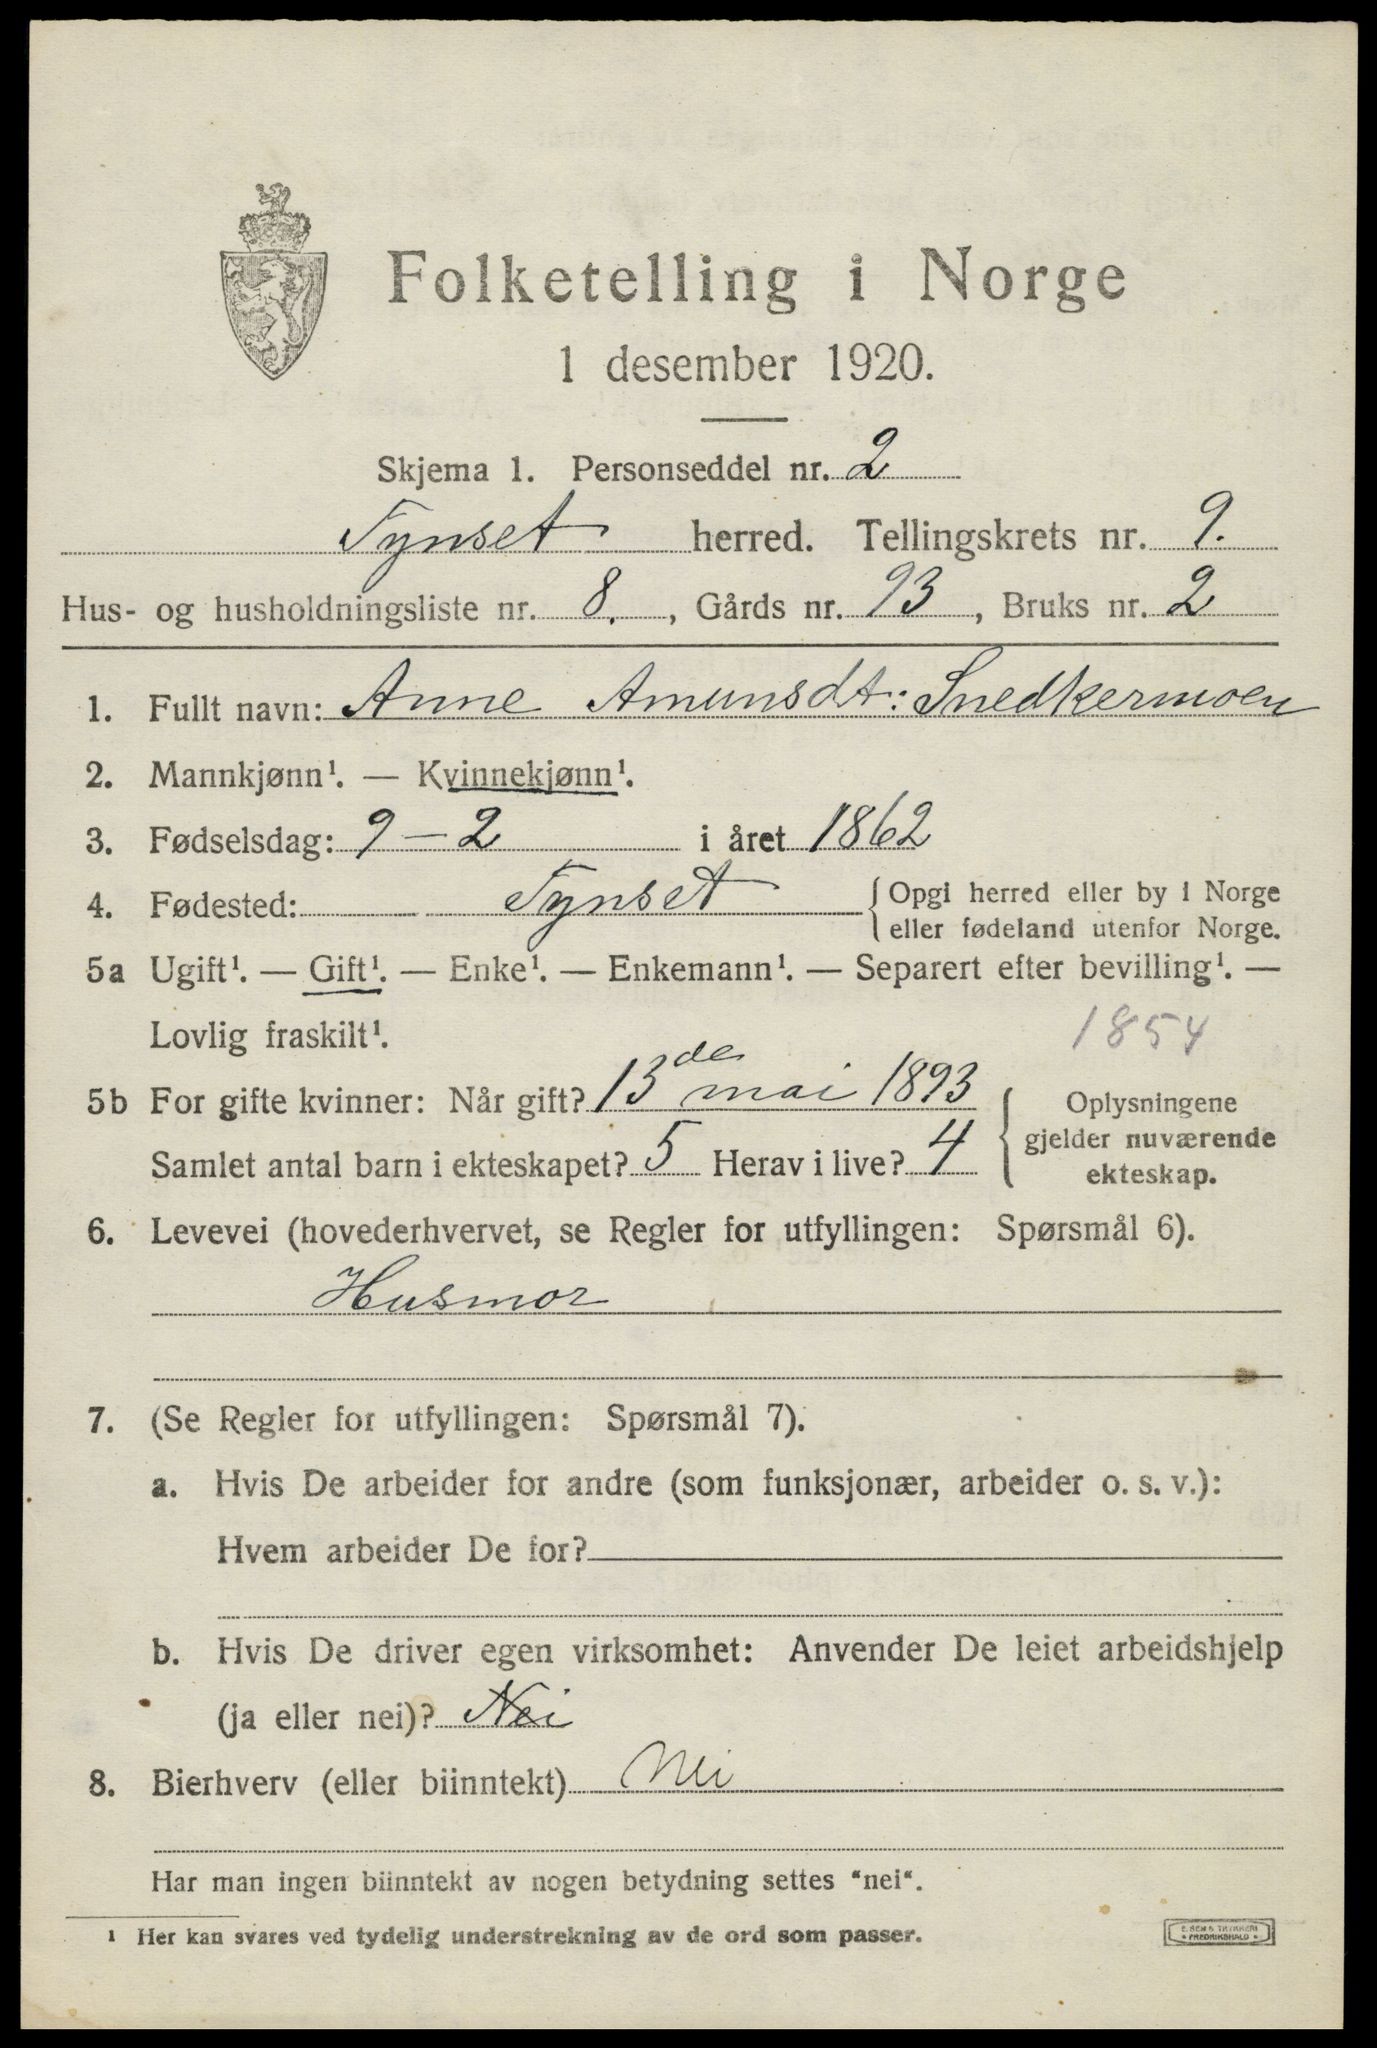 Folketelling i Norge
1 desember 1920.
Skjema 1. Personseddel nr. 2
Tynset herred. Tellingskrets nr. 9.
Hus- og husholdningsliste nr. 8. , Gårds nr. 93 , Bruks nr. 2
1. Fullt navn: Anne Amunsdt: Snedkermoen
2. Mannkjønn¹. — Kvinnekjønn¹.
3. Fødselsdag: 9 – 2 i året 1862
4. Fødested: Tynset { Opgi herred eller by i Norge
eller fødeland utenfor Norge.
5a Ugift¹. — Gift¹. — Enke¹. — Enkemann¹. — Separert efter bevilling¹. —
Lovlig fraskilt¹. 1854
5b For gifte kvinner: Når gift? 13de mai 1893
Samlet antal barn i ekteskapet? 5 Herav i live? 4
{ Oplysningene
gjelder nuværende
ekteskap.
6. Levevei (hovederhvervet, se Regler for utfyllingen: Spørsmål 6).
Husmor
7. (Se Regler for utfyllingen: Spørsmål 7).
a. Hvis De arbeider for andre (som funksjonær, arbeider o. s. v.):
Hvem arbeider De for?
b. Hvis De driver egen virksomhet: Anvender De leiet arbeidshjelp
(ja eller nei)? Nei
8. Bierhverv (eller biinntekt) Nei
Har man ingen biinntekt av nogen betydning settes "nei".
¹ Her kan svares ved tydelig understrekning av de ord som passer.
E. SEM'S TRYKKERI
FREDRIKSHALD